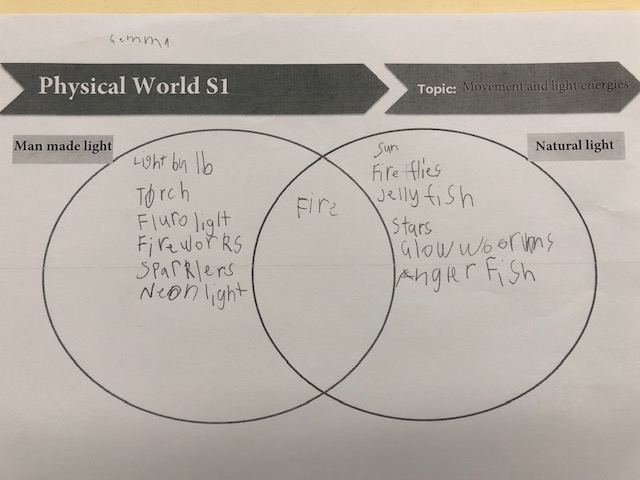 Gemma
Physical World S1
Topic: Movement and light energies
Man made light
Natural light
Light bulb
Torch
Fluro light
Fireworks
Sparklers
Neon light
Fire
Sun
Fire flies
Jelly fish
Stars
Glow woorms
Angler Fish